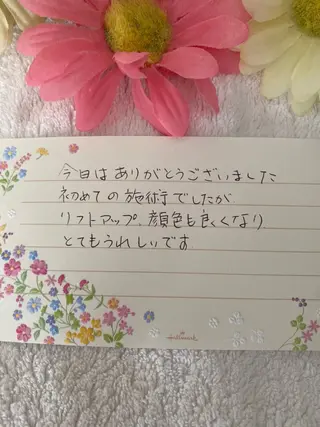 今日はありがとうございました
初めての施術でしたが
リフトアップ、顔色も良くなり
とてもうれしいです
Hallmark